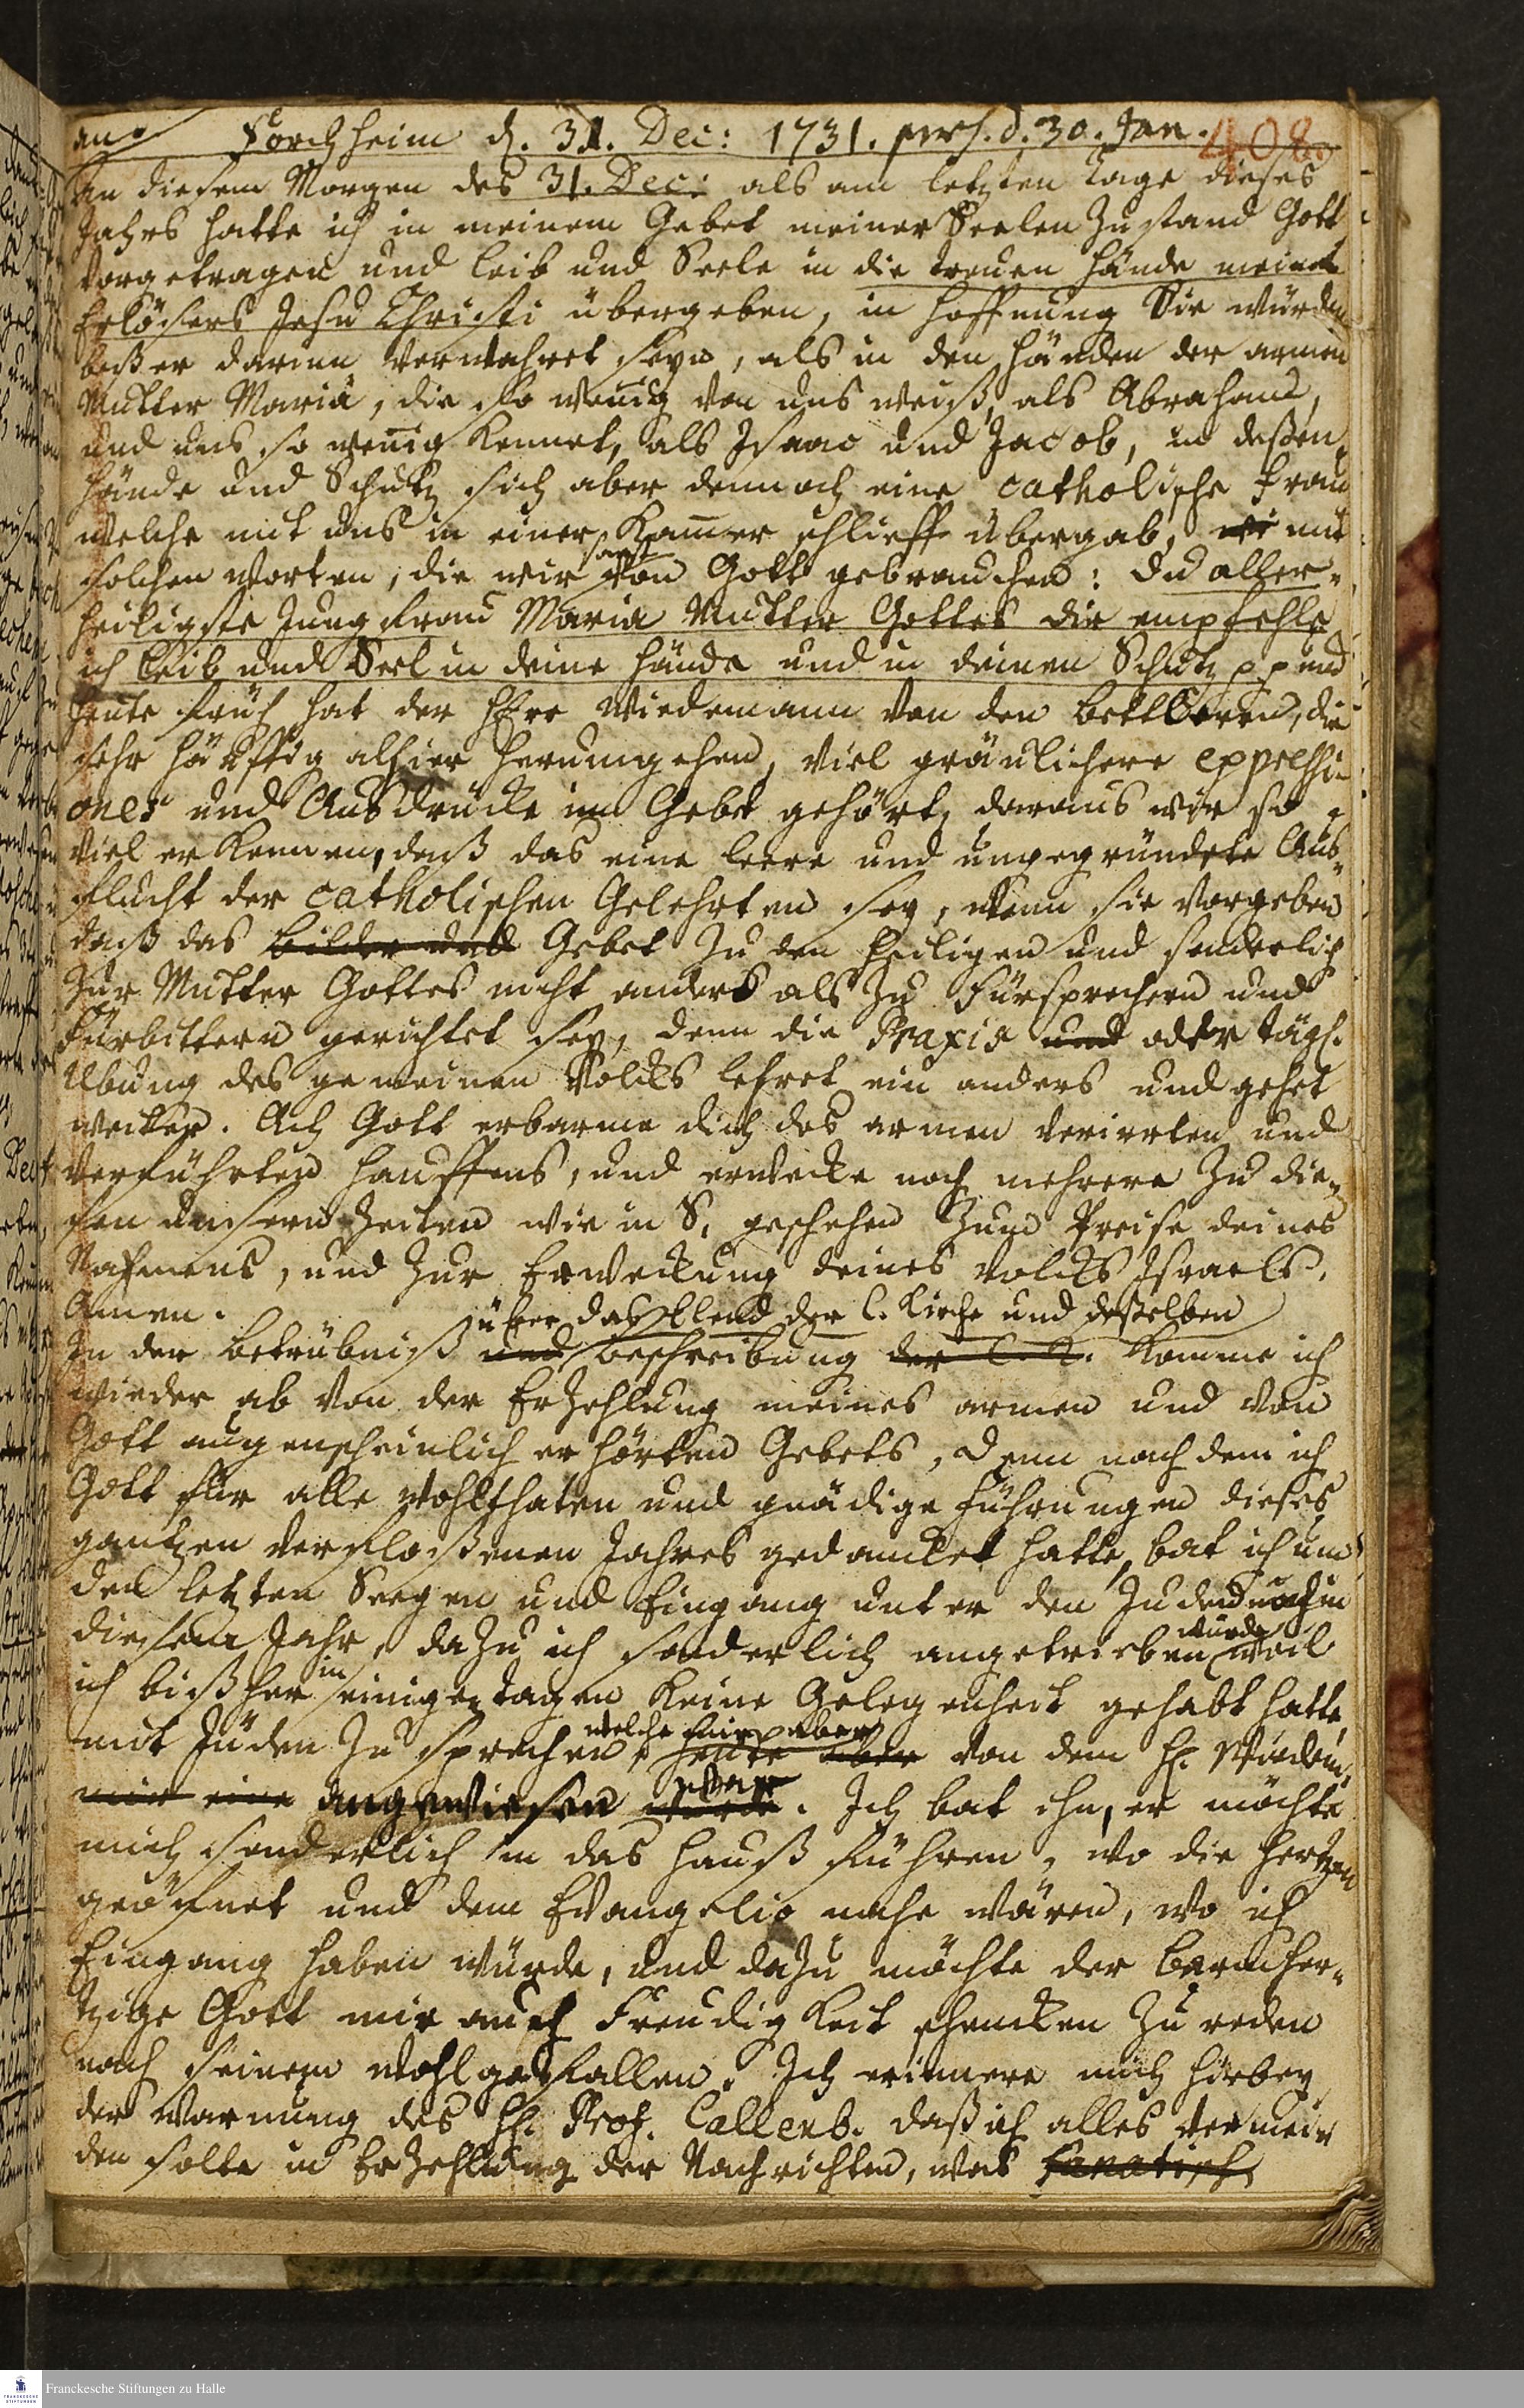 an
Forchheim d. 31. Dec: 1731. pers. d. 30. Jan.
408.
An diesem Morgen des 31. Dec: als am letzten Tage dieses
Jahrs hatte ich in meinem Gebet meiner Seelen Zustand Gott
vorgetragen und Leib und Seele in die treuen Hände meines
Erlösers Jesu Christi übergeben, in Hoffnung Sie würden
beßer darinn verwahret seyn, als in den Händen der armen
Mutter Maria, die so wenig von uns weiß, als Abraham,
und uns so wenig kennet, als Isaac und Jacob, in deßen
Hände und Schutz sich aber dennoch eine catholische Frau
welche mit uns in einer Kammer schlieff übergab, mit
solchen Worten, die wir sonst von Gott gebrauchen: Du aller-
heiligste Jungfrau Maria Mutter Gottes dir empfehle
ich Leib und Seel in deine Hände und in deinen Schutz pp und
heute früh hat der Herr Wiedemann von den Bettlern, die
sehr häuffig alhier herumgehen, viel gräulichere expressi-
ones und Ausdrücke im Gebet gehört, daraus wir so
viel erkennen, daß das eine leere und ungegründete Aus-
flucht der catholischen Gelehrten sey, wenn sie vorgeben
daß das bilder und Gebet zu den Heiligen und sonderlich
Zur Mutter Gottes nicht anders als zu Fürsprechern und
Fürbittern gerichtet sey, denn die Praxis und oder tägl.
Ubung des gemeinen Volcks lehret ein anders und gehet
weiter. Ach Gott erbarme dich des armen verirrten und
verführten Hauffens, und erwecke noch mehrere zu die-
sen unsern Zeiten wie in S. geschehen Zum Preise deines
Nahmens, und zur Erweckung deines Volcks Israels.
Amen.
über das Elend der C. Kirche und deßelben
In der Betrübniß und Beschreibung der C. K. komme ich
wieder ab von der Erzehlung meines armen und von
Gott augenscheinlich erhörten Gebets, Denn nach dem ich
Gott für alle Wohlthaten und gnädige Führungen dieses
gantzen verfloßenen Jahres gedancket hatte, bat ich um
den letzten Seegen und Eingang unter den Juden noch in
diesem Jahr, dazu ich sonderlich angetrieben wurde weil
ich bißher in einigen Tagen keine Gelegenheit gehabt hatte
mit Juden zu sprechen, welche mir aber heute aber von dem H. Widem.
mir eine angewiesen war wurde. Ich bat ihn, er möchte
mich sonderlich in das Hauß führen, wo die Hertzen
geöfnet und dem Evangelio nahe wären, wo ich
Eingang haben würde, und dazu möchte der barmher-
tzige Gott mir auch Freudigkeit schencken zu reden
nach seinem Wohlgefallen. Ich erinnere mich hiebey
der Warnung des H. Prof. Callenb. daß ich alles vermei-
den solte in Erzehlung der Nachrichten, was fanatisch
Franckesche Stiftungen zu Halle